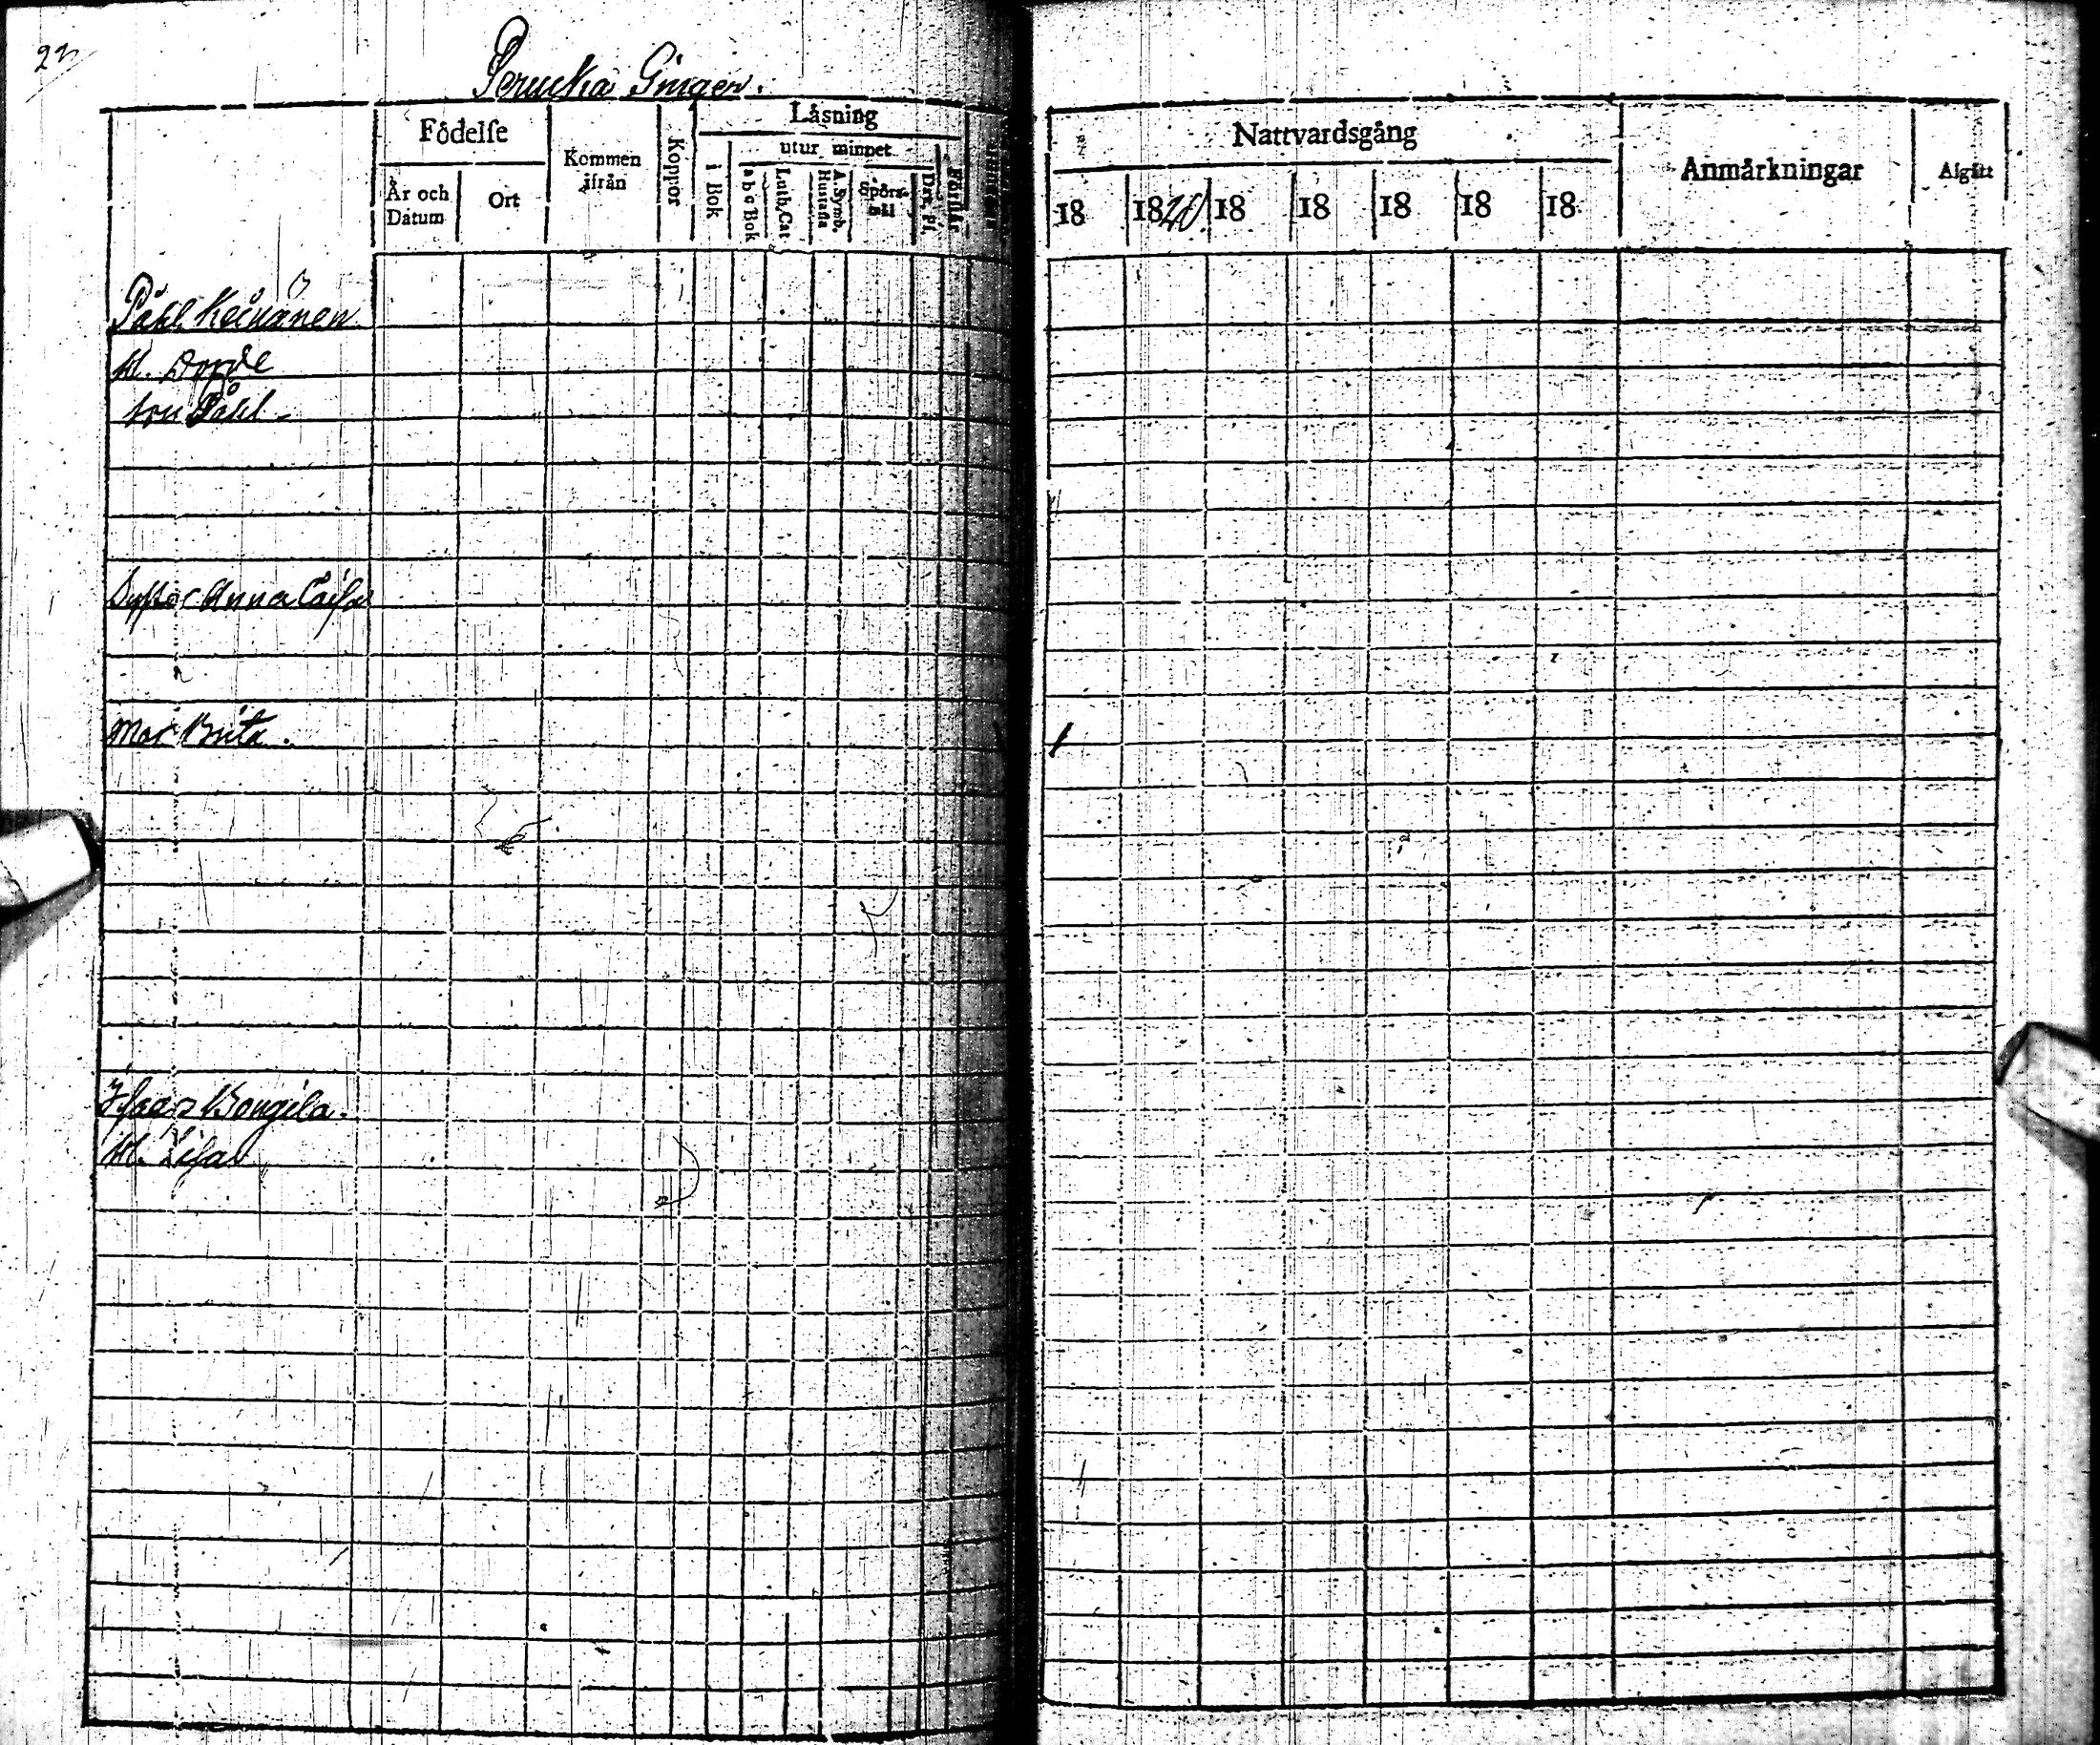 22
Perucka Ginger.
Födelſe
Kommen ifrån
Koppor
Läsning
År och Datum
Ort
i Bok
utur minnet
a b c Bok
Luth. Cat
A. Symb. Hustafla
Spörsmål
Dav. Ps.
Förstår
Nattvardsgång
Anmärkningar
Afgått
18
1820
18
18
18
18
18
Påhl Keinänen
H.
Son Påhl
Syster Anna Caisa
Mor Brita.
Isaac
H. Lisa